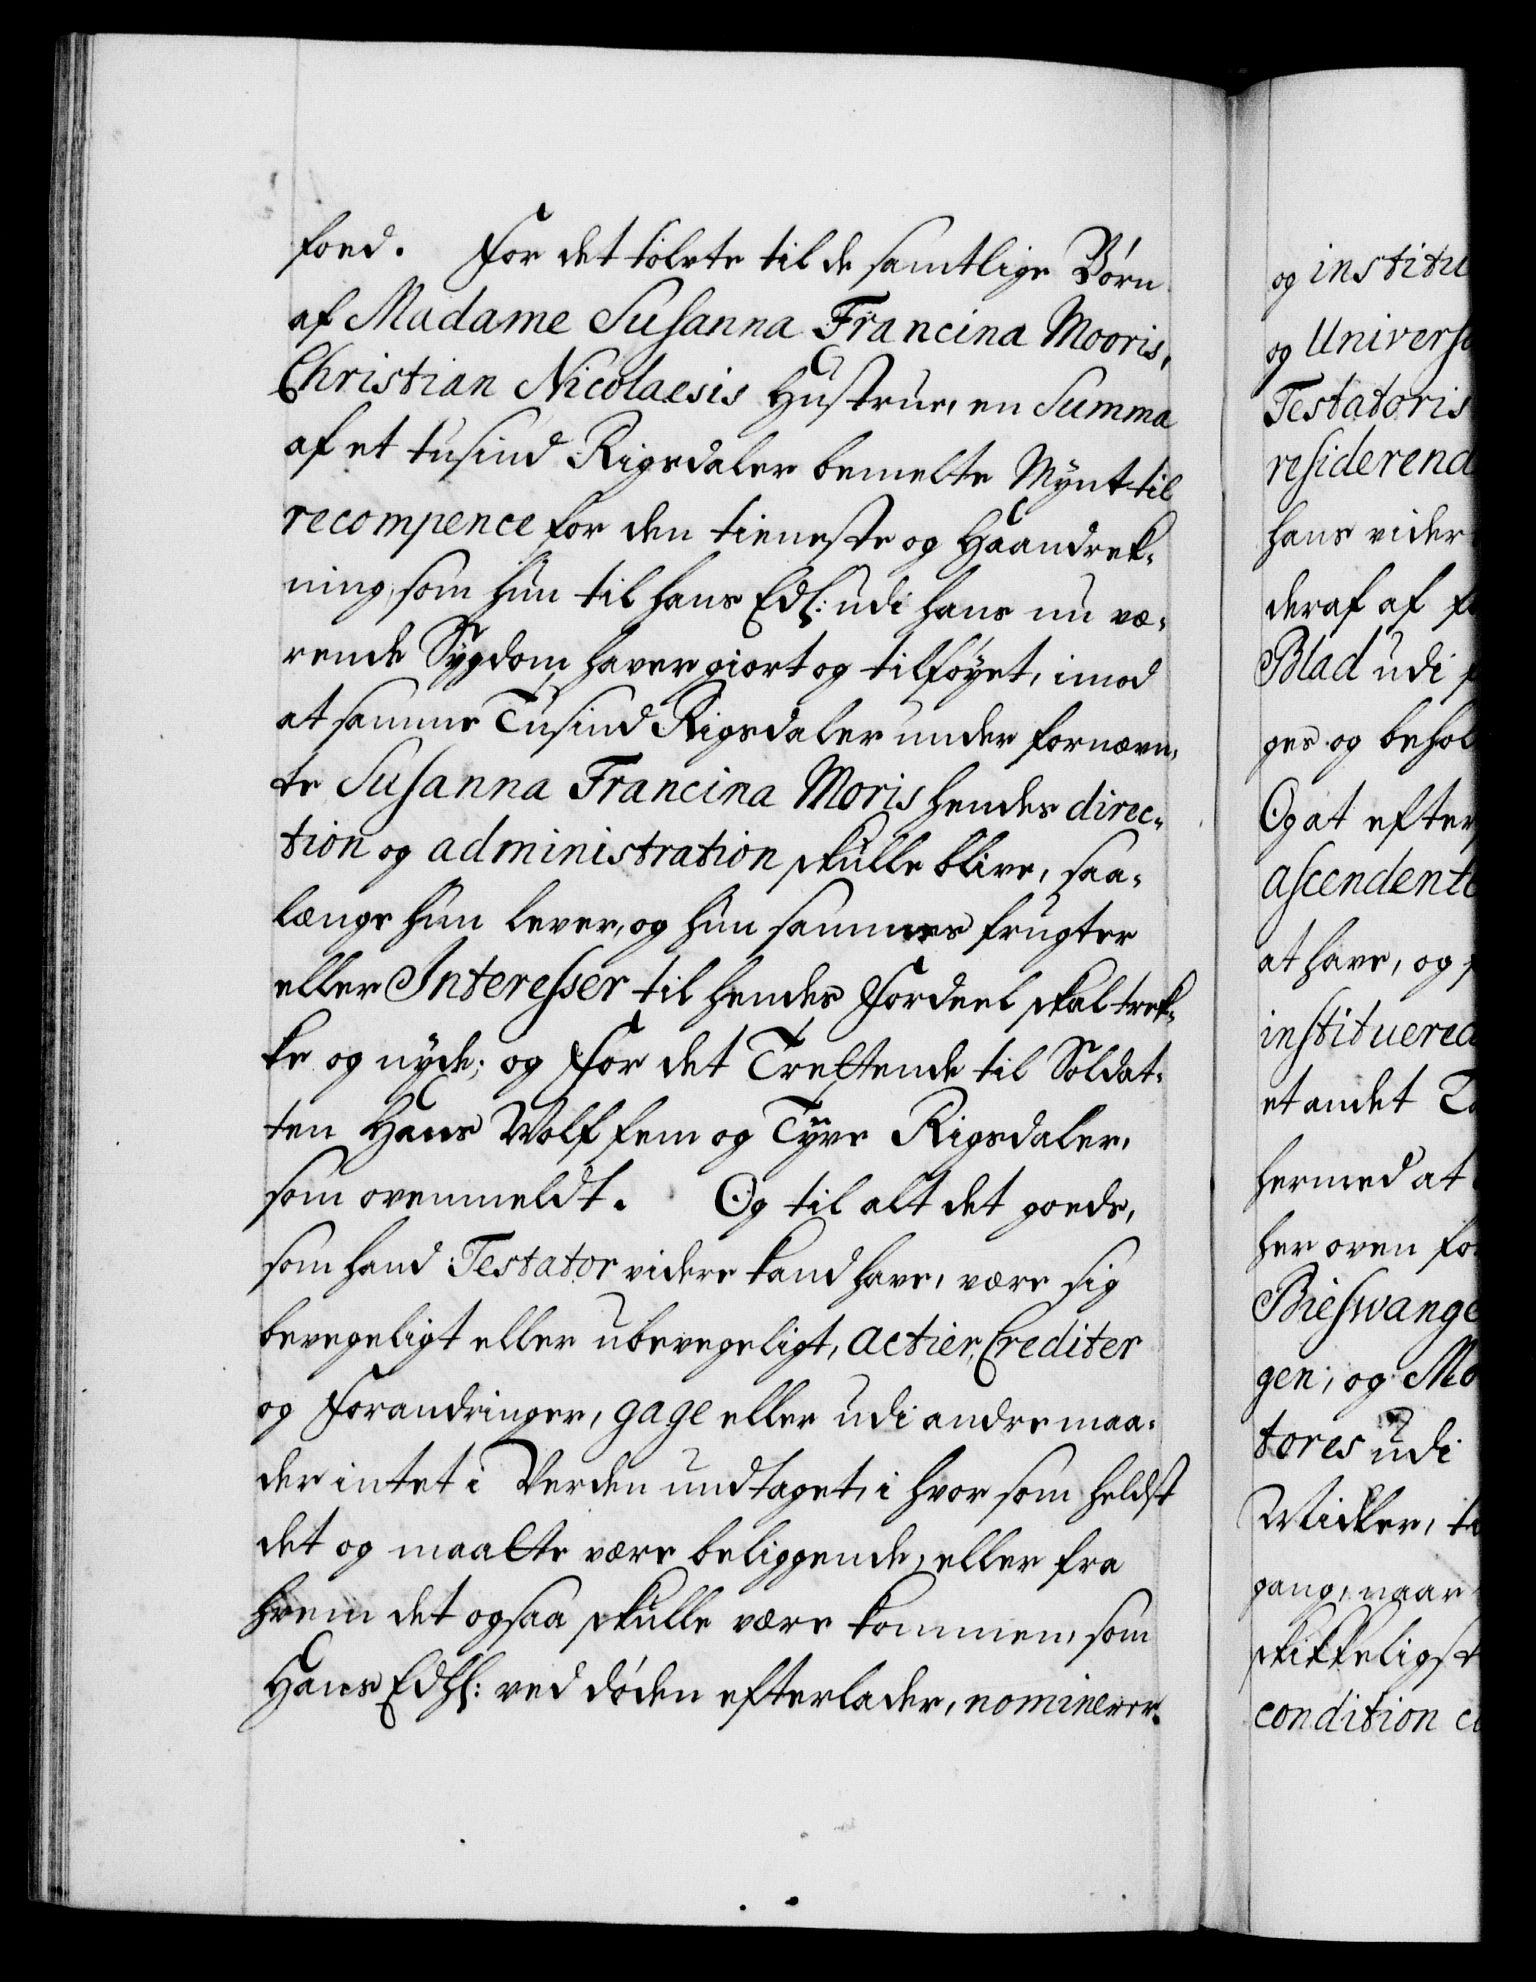 foed. For det tolvte til de samtlige Børn
af Madame Susanna Francina Mooris,
Christian Nicolaesis Hustrue, en Summa
af et tusind Rigsdaler bemelte Mynt til
recompence for den tieneste og Haandrek-
ning, som hun til hans Edl: udi hans nu væ-
rende Sygdom, haver giort og tilføyet, imod
at samme Tusind Rigsdaler under fornævn-
te Susanna Francina Moris hendes direc-
tion og administration skulle blive, saa-
længe hun lever, og hun sammes frugter
eller Interesser til hendes Fordeel skal trek-
ke og nyde; og For det Trettende til Soldat-
ten Hans Wolff fem og Tyve Rigsdaler,
som ovenmeldt. Og til alt det goeds,
som hand Testator videre kand have, være sig
bevegeligt eller ubevegeligt, actier, Crediter
og Forandringer, gage eller udi andre maa-
der intet i Verden undtaget, i hvor som heldst
det og maatte være beliggende, eller fra
hvem det ogsaa skulle være kommen, som
Hans Edhl: ved døden efterlader, nominerer
og institu
og Univers
Testatoris
residerend
hans vider
deraf af
Blad udi
ges og behol
Og at efter
ascendent
at have, og
instituered
et andet
hermed at
her oven for
Bieswange
gen; og Mo
tores udi
Midler, ti
gang, naar
skikkeligst
condition